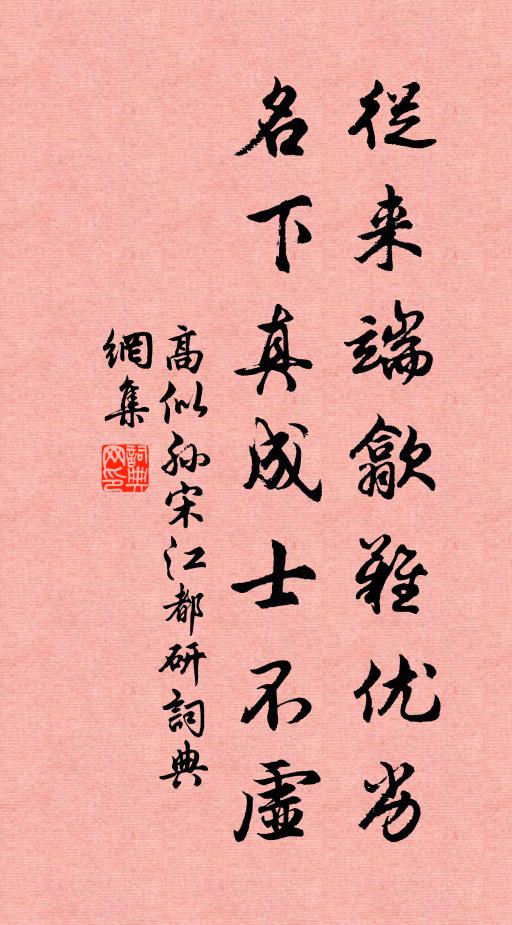 從来端歙難优劣
名下真成士不虛
高似孙宋江都研詞典
網集
詞典网印